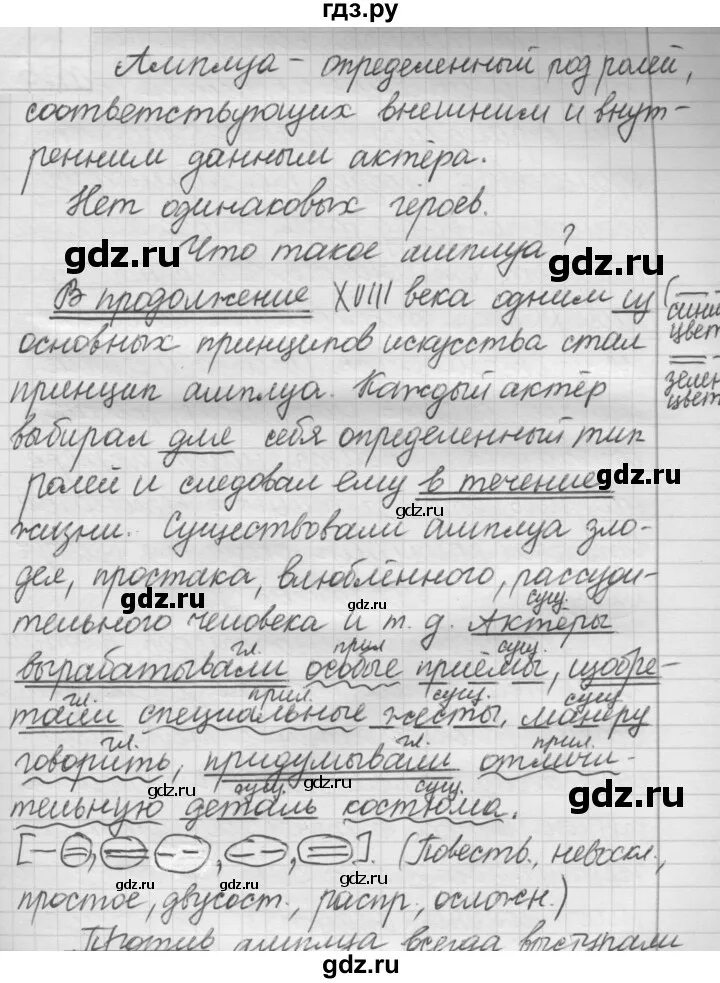 гдз.ру
Амплуа – определенный род ролей,
соответствующих внешним и внут-
ренним данным актёра.
Нет одинаковых героев.
gdz.ru
gdz.ru
Что такое амплуа?
В продолжение XVIII века одним из
(синий
цвет
основных принципов искусства стал
зелен
цвет
принцип амплуа. Каждый актёр
выбирал для себя определенный тип
ролей и следовал ему в течение
gdz.ru
gdz.ru
жизни. Существовали амплуа зло-
дея, простака, влюблённого, рассуди-
gdz.ru
сущ.
тельного человека и т. д. Актёры
гл. прил. сущ.
вырабатывали особые приёмы, изобре-
гл. прил. сущ. сущ.
тали специальные жесты, манеру
гл. гл. прил.
говорить, придумывали отличи-
gdz.ru
gdz.ru
сущ. сущ.
тельную деталь костюма.
gdz.ru
[ , , , ]. (Повест., невоскл.,
gdz.ru
простое, двусост., распр., осложн.)
gdz.ru
Против амплуа всегда выступали
gdz.ru
gdz.ru